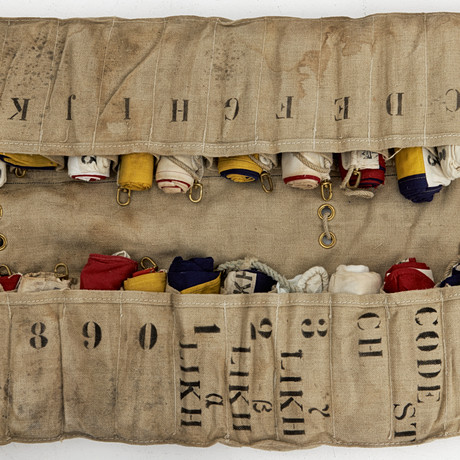 C D E F G H I J K
8 9 0
1
LIKH
α
2
LIKH
β
3
LIKH
γ
CH
CODE
ST